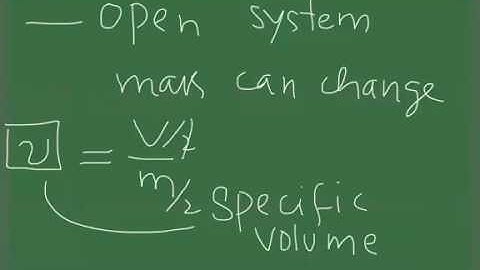 — Open system
mass can change
v = V/2 / m/2
Specific
volume